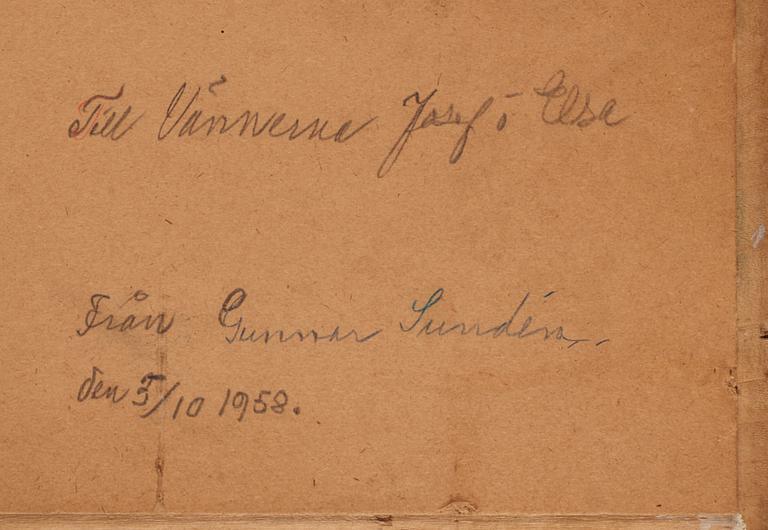 Till Vännerna Josef o Elsa
Från Gunnar Sundén.
den 5/10 1958.